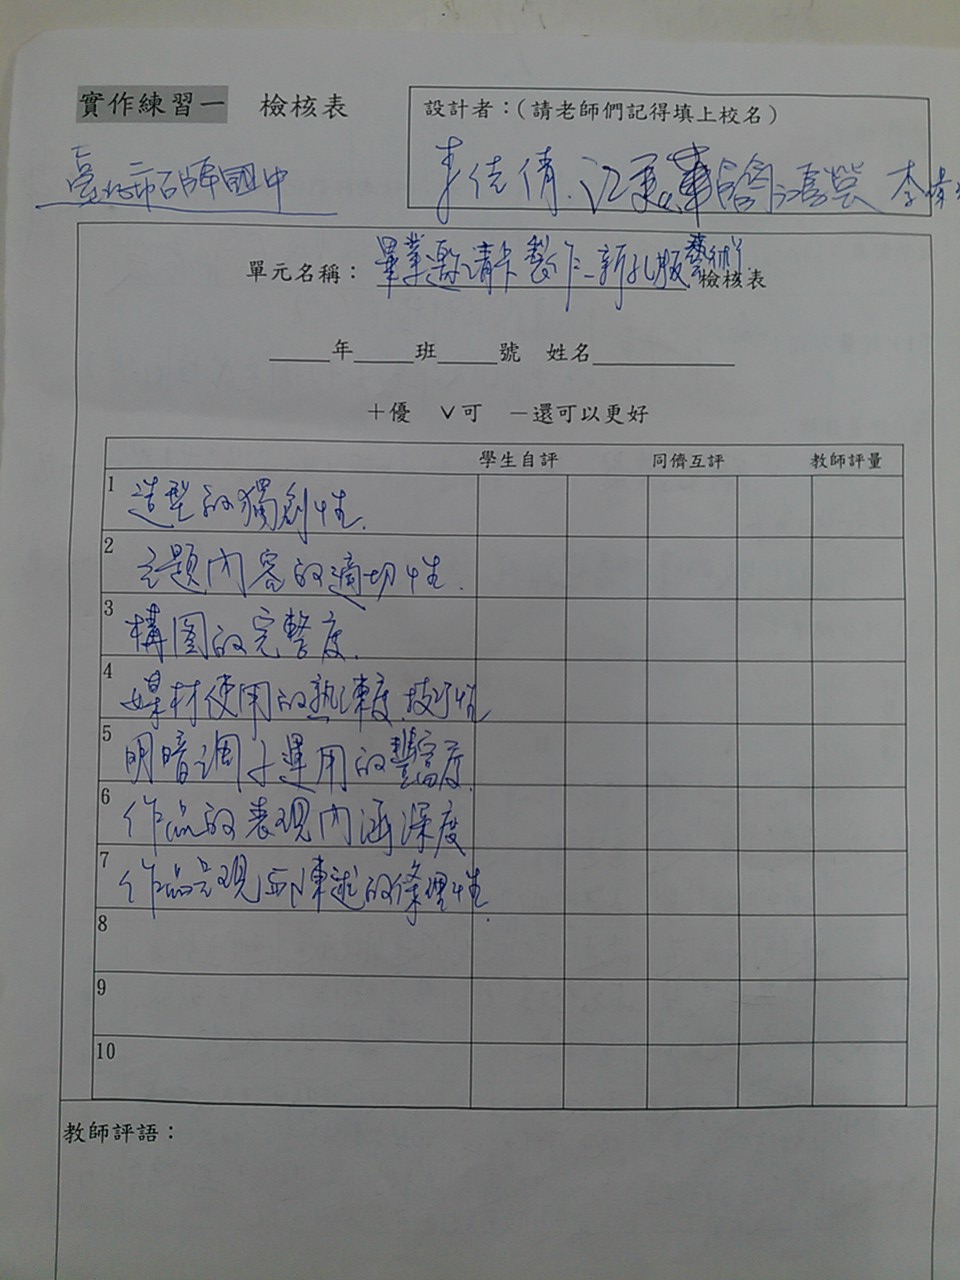 實作練習一 檢核表
設計者：(請老師們記得填上校名)
臺北市石牌國中
李
單元名稱： 畢業邀請卡製作—新孔版藝術 檢核表
____年____班____號 姓名________
＋優 ∨可 －還可以更好
學生自評 同儕互評 教師評量
1 造型的獨創性.
2 主題內容的適切性.
3 構圖的完整度.
4 媒材使用的熟練度.技巧性
5 明暗調子運用的豐富度.
6 作品的表現內涵深度
7 作品呈現與陳述的條理性.
8
9
10
教師評語：